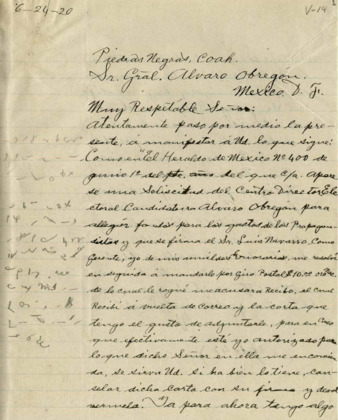 6-24-20
V-14
Piedras Negras, Coah.
Sr. Gral. Alvaro Obregón.
Mexico, D. F.
Muy Respetable Señor:
Atentamente paso por medio la pre-
sente, a manifestar a Ud. lo que sigue:
Como en "El Heraldo de Mexico No 400 de
Junio 1o del pte. año del que c/a. Apare-
se una Solicitud del Centro Director Ele-
ctoral Candidatura Alvaro Obregón para
allegar fondos para los gastos de los Propagan-
distas y que se firma el Sr. Luis Navarro, Como
Gerente, yo de mis umildes me
en seguida a mandarle por Giro Postal $10.00
de lo cual le rogué me acusara Recibo, el cual
Recibí a vuelta de correo y la carta que
tengo el gusto de adjuntarle, para en
que efectivamente este yo autorizado por
lo que dicho Señor en ella me encomi-
enda, se sirva Ud. si ha bien lo tiene, can-
selar dicha carta con su firma y
sermela. Ya para ahora tengo algo